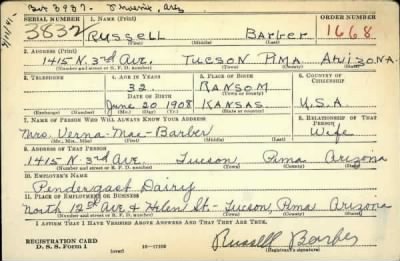 Box 3987- Phoenix, Ariz
SERIAL NUMBER 1. NAME (Print) ORDER NUMBER
3832 Russell Barber 1668
(First) (Middle) (Last)
2. ADDRESS (Print)
1415 N. 3rd Ave, Tucson Pima Arizona
(Number and street or R. F. D. number) (Town) (County) (State)
3. TELEPHONE 4. AGE IN YEARS 5. PLACE OF BIRTH 6. COUNTRY OF CITIZENSHIP
32 Ransom
DATE OF BIRTH (Town or county)
June 20 1908 Kansas U.S.A
(Exchange) (Number) (Mo.) (Day) (Yr.) (State or country)
7. NAME OF PERSON WHO WILL ALWAYS KNOW YOUR ADDRESS 8. RELATIONSHIP OF THAT PERSON
Mrs. Verna-Mae-Barber Wife
(Mr., Mrs., Miss) (First) (Middle) (Last)
9. ADDRESS OF THAT PERSON
1415 N. 3rd Ave. Tucson Pima Arizona
(Number and street or R. F. D. number) (Town) (County) (State)
10. EMPLOYER'S NAME
Pendergast Dairy
11. PLACE OF EMPLOYMENT OR BUSINESS
North 12th Ave & Helen St-Tucson, Pima Arizona
(Number and street or R. F. D. number) (Town) (County) (State)
I AFFIRM THAT I HAVE VERIFIED ABOVE ANSWERS AND THAT THEY ARE TRUE.
REGISTRATION CARD
D. S. S. Form 1 (over) 16-17105 Russell Barber
(Registrant's signature)